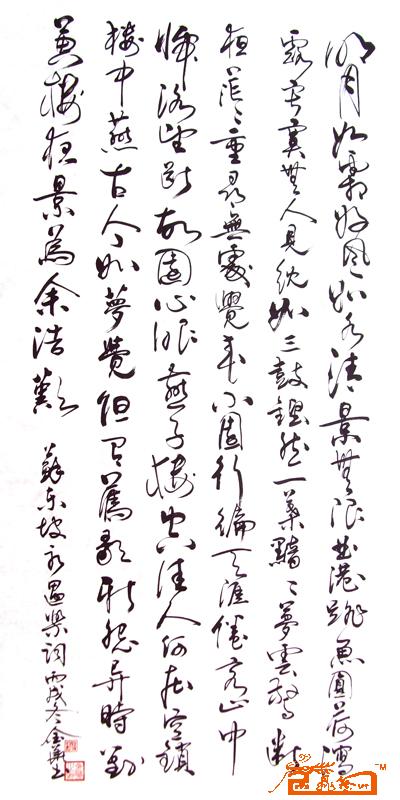 明月如霜好風如水清景無限曲港跳魚圓荷瀉
露寂寞無人見紞如三鼓鏗然一葉黯々夢雲驚斷
夜茫々重尋無處覺來小園行遍天涯倦客山中
歸路望斷故園心眼燕子樓空佳人何在空鎖
樓中燕古今如夢覺但有舊歡新怨異時對
黃樓夜景為余浩歎
蘇東坡永遇樂詞丙戌冬